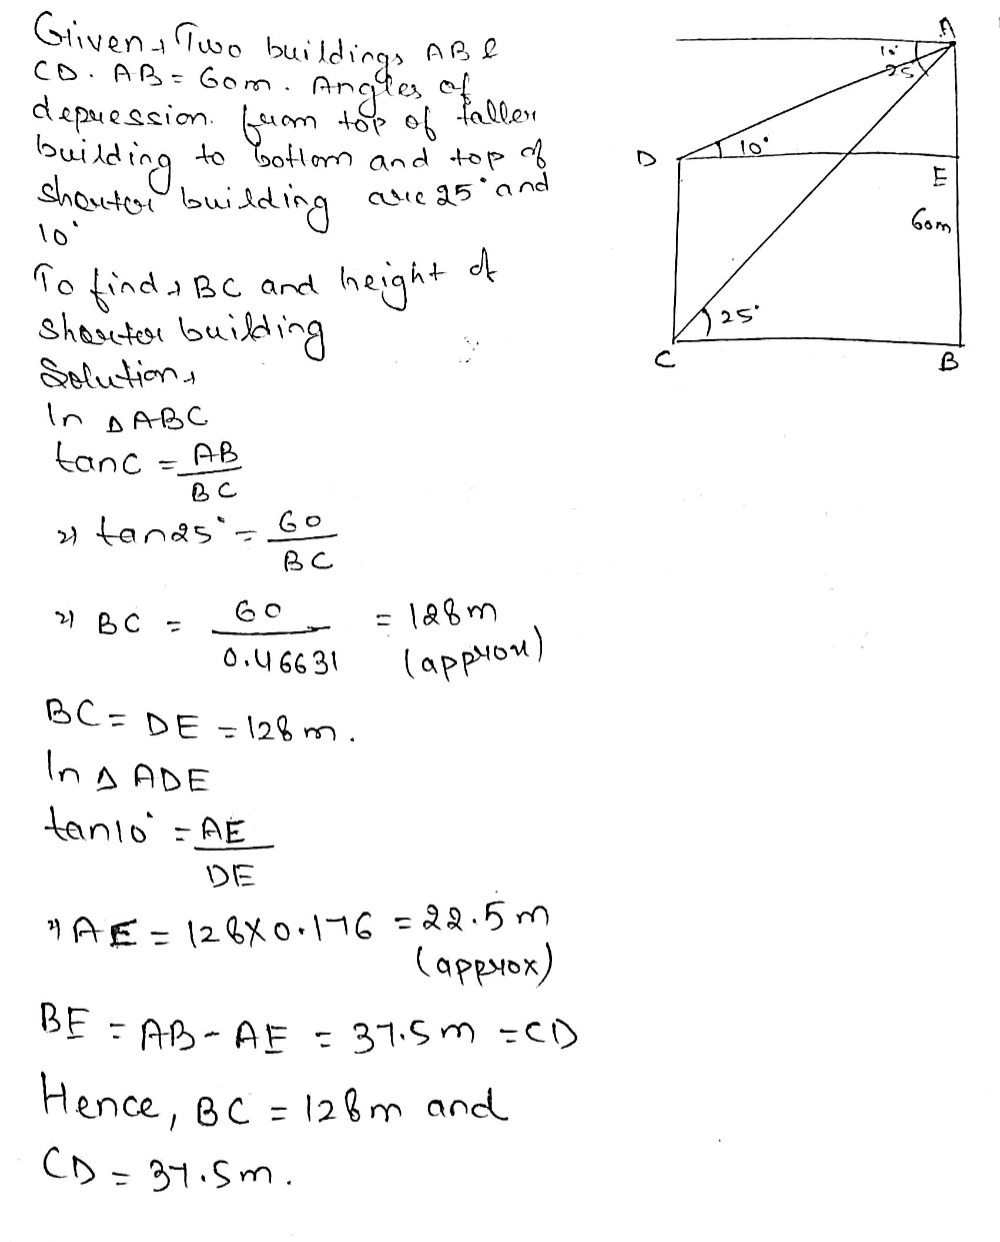 Given → Two buildings AB &
CD. AB = 60m. Angles of
depression from top of taller
building to bottom and top of
shorter building are 25° and
10°
To find → BC and height of
shorter building
Solution →
In △ ABC
tanC = AB
BC
⇒ tan25° = 60
BC
⇒ BC = 60 = 128m
0.46631 (approx)
BC = DE = 128m.
In △ ADE
tan10° = AE
DE
⇒ AE = 128 X 0.176 = 22.5m
(approx)
BE = AB - AE = 37.5m = CD
Hence, BC = 128m and
CD = 37.5m.
A
10°
25°
D
10°
E
60m
25°
C
B